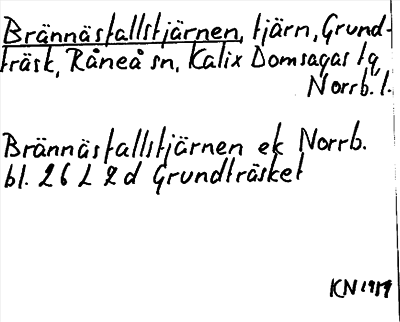 Brännästallstjärnen, tjärn, Grund-
träsk, Råneå sn, Kalix Domsagas tg,
Norrb. l.
Brännästallstjärnen ek Norrb.
bl. 26 L 2 d Grundträsket
KN 1989